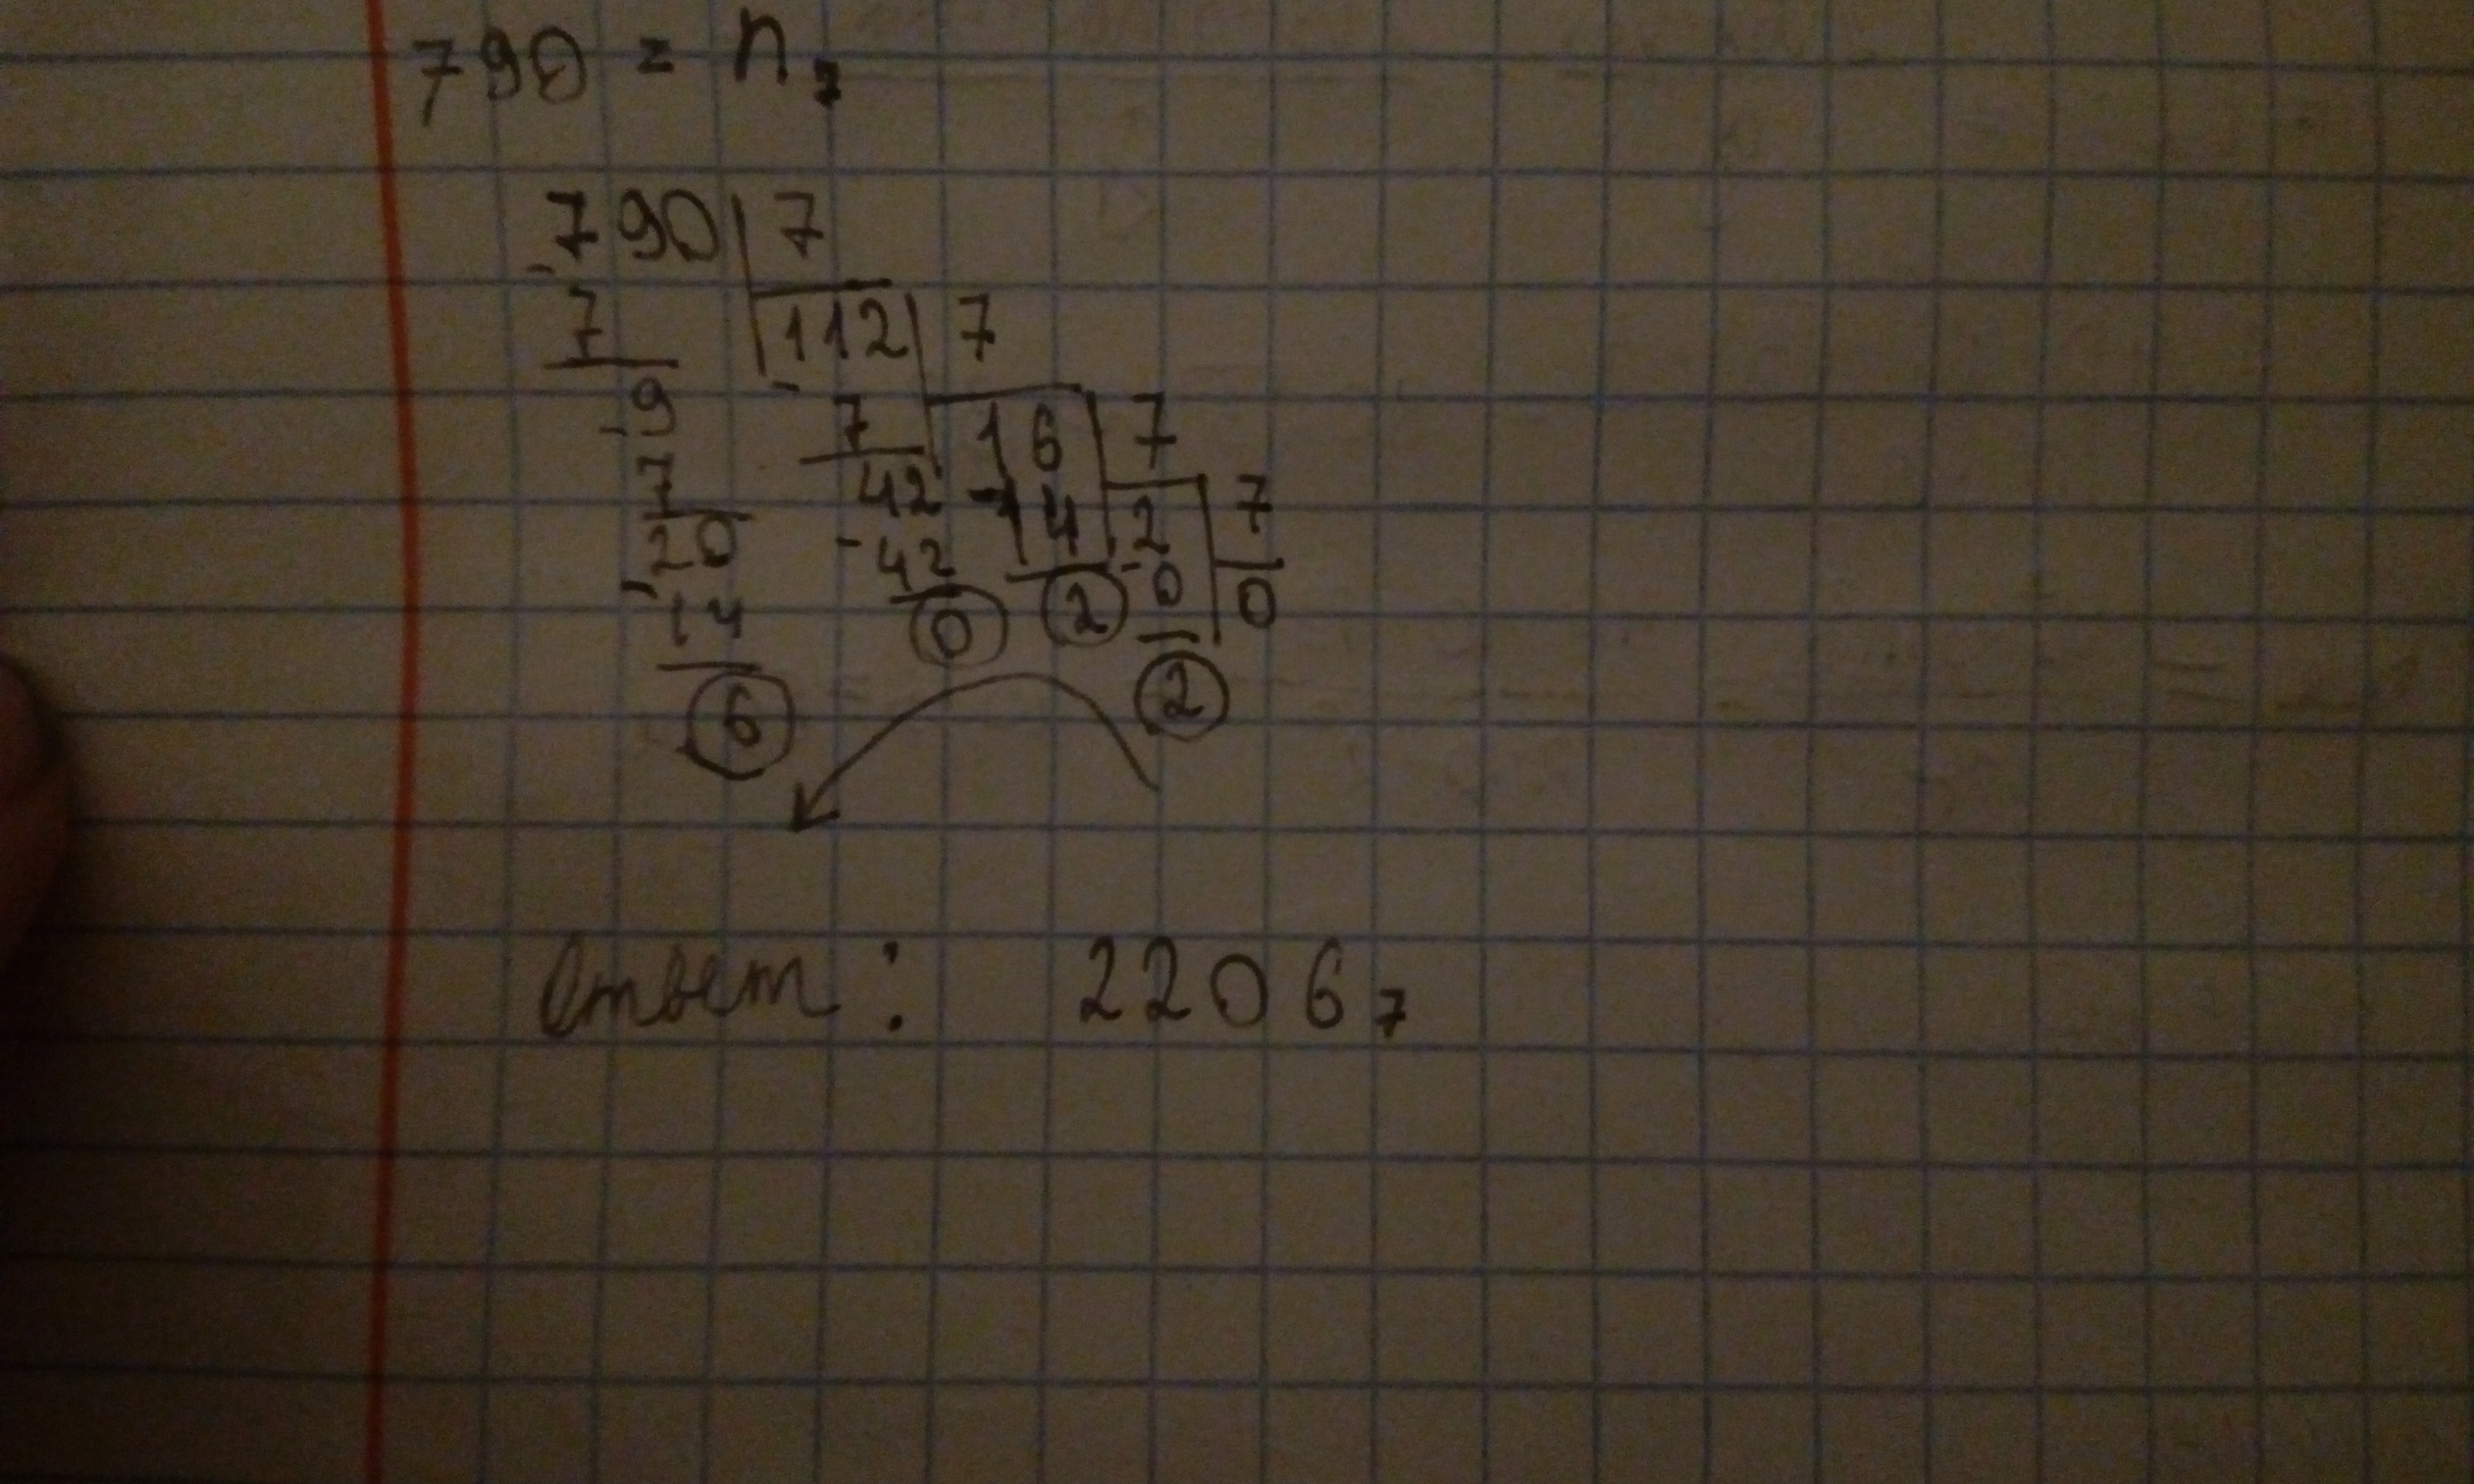 790 = n₇
790 7
- 7 112 7
- 9 - 7 16 7
7 42 - 14 2 7
20 - 42 2 - 0 0
- 14 0 2
6
Ответ: 2206₇